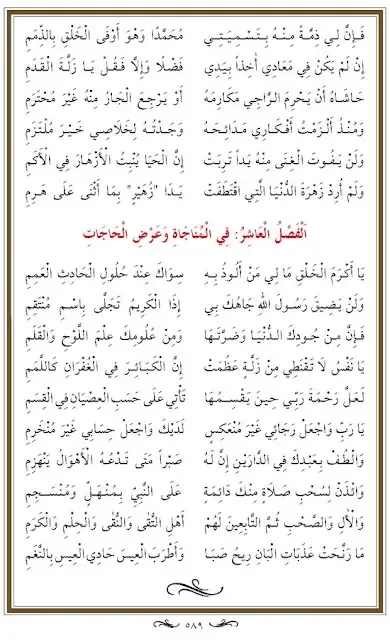 فَإِنَّ لِي ذِمَّةً مِنْهُ بِتَسْمِيَتِي مُحَمَّدًا وَهْوَ أَوْفَى الْخَلْقِ بِالذِّمَمِ
إِنْ لَمْ يَكُنْ فِي مَعَادِي أٰخِذًا بِيَدِي فَضْلًا وَإِلَّا فَقُلْ يَا زَلَّةَ الْقَدَمِ
حَاشَاهُ أَنْ يَحْرِمَ الرَّاجِي مَكَارِمَهُ أَوْ يَرْجِعَ الْجَارُ مِنْهُ غَيْرَ مُحْتَرَمِ
وَمُنْذُ أَلْزَمْتُ أَفْكَارِي مَدَائِحَهُ وَجَدْتُهُ لِخَلَاصِي خَيْرَ مُلْتَزِمِ
وَلَنْ يَفُوتَ الْغِنَى مِنْهُ يَدًا تَرِبَتْ إِنَّ الْحَيَا يُنْبِتُ الْأَزْهَارَ فِي الْأَكَمِ
وَلَمْ أُرِدْ زَهْرَةَ الدُّنْيَا الَّتِي اقْتَطَفَتْ يَدَا "زُهَيْرٍ" بِمَا أَثْنَى عَلَى هَرِمِ
اَلْفَصْلُ الْعَاشِرُ: فِي الْمُنَاجَاةِ وَعَرْضِ الْحَاجَاتِ
يَا أَكْرَمَ الْخَلْقِ مَا لِي مَنْ أَلُوذُ بِهِ سِوَاكَ عِنْدَ حُلُولِ الْحَادِثِ الْعَمِمِ
وَلَنْ يَضِيقَ رَسُولَ اللهِ جَاهُكَ بِي إِذَا الْكَرِيمُ تَجَلَّى بِاسْمِ مُنْتَقِمِ
فَإِنَّ مِنْ جُودِكَ الدُّنْيَا وَضَرَّتَهَا وَمِنْ عُلُومِكَ عِلْمَ اللَّوْحِ وَالْقَلَمِ
يَا نَفْسُ لَا تَقْنَطِي مِنْ زَلَّةٍ عَظُمَتْ إِنَّ الْكَبَائِرَ فِي الْغُفْرَانِ كَاللَّمَمِ
لَعَلَّ رَحْمَةَ رَبِّي حِينَ يَقْسِمُهَا تَأْتِي عَلَى حَسَبِ الْعِصْيَانِ فِي الْقِسَمِ
يَا رَبِّ وَاجْعَلْ رَجَائِي غَيْرَ مُنْعَكِسٍ لَدَيْكَ وَاجْعَلْ حِسَابِي غَيْرَ مُنْخَرِمِ
وَالْطُفْ بِعَبْدِكَ فِي الدَّارَيْنِ إِنَّ لَهُ صَبْرًا مَتَى تَدْعُهُ الْأَهْوَالُ يَنْهَزِمِ
وَائْذَنْ لِسُحْبِ صَلَاةٍ مِنْكَ دَائِمَةٍ عَلَى النَّبِيِّ بِمُنْهَلٍّ وَمُنْسَجِمِ
وَالْأٰلِ وَالصَّحْبِ ثُمَّ التَّابِعِينَ لَهُمْ أَهْلِ التُّقٰى وَالنُّقٰى وَالْحِلْمِ وَالْكَرَمِ
مَا رَنَّحَتْ عَذَبَاتِ الْبَانِ رِيحُ صَبَا وَأَطْرَبَ الْعِيسَ حَادِي الْعِيسِ بِالنَّغَمِ
٥٨٩